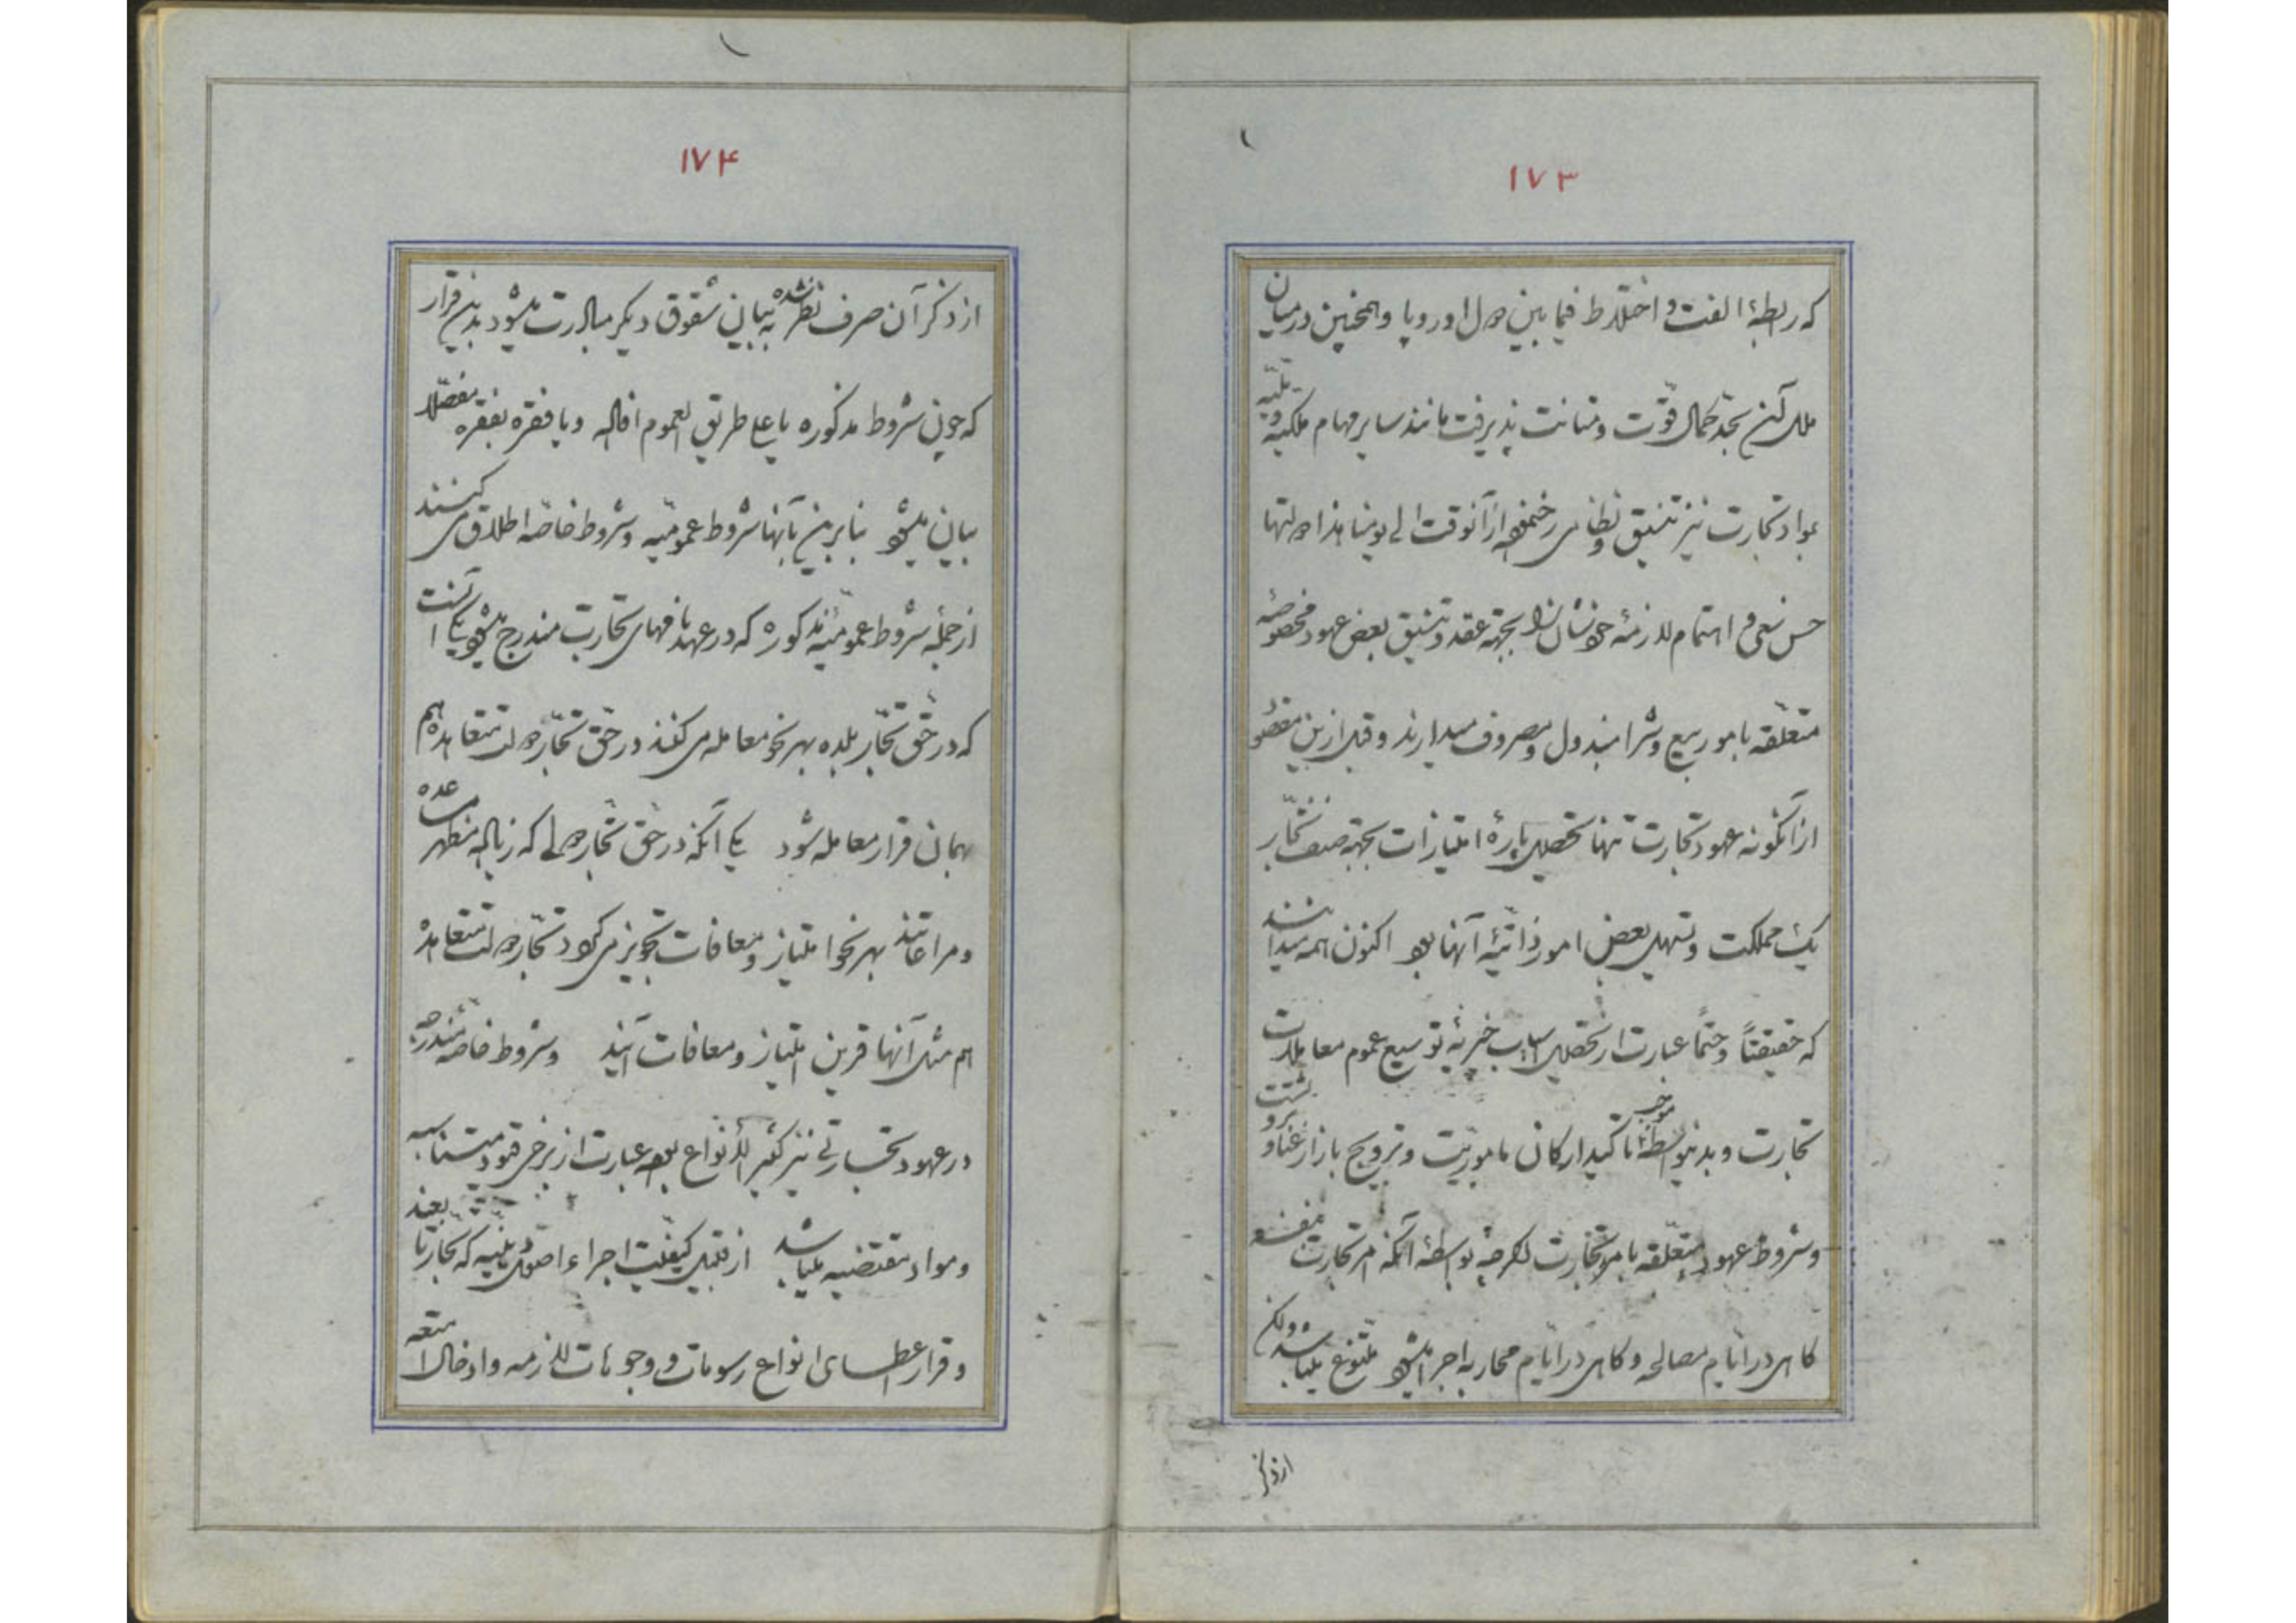 ۱۷۳
که رابطهٔ الفت و اختلاط فیما بین دول اوروپا و همچنین در میان
ملل آن بحد کمال قوّت و متانت پذیرفت مانند سایر مهام ملکیه و ملّیه
بمواد تجارت نیز تنسیق و نظامی از آنوقت الی یومنا هذا دولتها
حسن سعی و اهتمام لازمهٔ خودشان را بجهة عقد و تنسیق بعض عهود مخصوصهٔ
متعلّقه بامور بیع و شرا مبذول و مصروف میدارند و قبل ازین مقصود
از آنگونه عهود تجارت تنها تحصیل پارهٔ امتیازات بجهة صنف تجّار
یک مملکت و تسهیل بعض امور ذاتیّهٔ آنها بود اکنون همه میدانند
که حقیقتاً و حتماً عبارت از تحصیل اسباب خیریّهٔ توسیع عموم معاملات
تجارت و بدینواسطه موجب تأکید ارکان مأموریّت و ترویج بازار غنا و ثروتست
و شروط عهود متعلّقه بامور تجارت اگرچه بواسطهٔ آنکه امر تجارت
گاهی در ایّام مصالحه و گاهی در ایّام محاربه اجرا میشود متنوّع میباشد ولکن
از ذکر
۱۷۴
از ذکر آن صرف نظر شده به بیان شقوق دیگر مبادرت میشود بدین قرار
که چون شروط مذکوره یا علی طریق العموم افاده و یا فقره بفقره مفصّلا
بیان میشود بنابرین بآنها شروط عمومیّه و شروط خاصّه اطلاق می کنند
از جملهٔ شروط عمومیّهٔ مذکوره که در عهدنامهای تجارت مندرج میشود یکی آنست
که در حقّ تجّار بلده بهر نحو معامله می کنند در حقّ تجّار دولت متعاهده هم
بهمان قرار معامله شود یکی آنکه در حقّ تجّار دولی که زیاده مظهر مساعده
و مراعاتند بهر نحو امتیاز و معافات تجویز می گردد تجّار دولت متعاهده
هم مثل آنها قرین امتیاز و معافات آیند و شروط خاصّهٔ مندرجه
در عهود تجارتی نیز کثیر الأنواع بوده عبارت از برخی قیود متناسبه
و مواد مقتضیه میباشد از قبیل کیفیّت اجراء اصول
و قرار اعطای انواع رسومات و وجوهات لازمه و ادخال امتعه